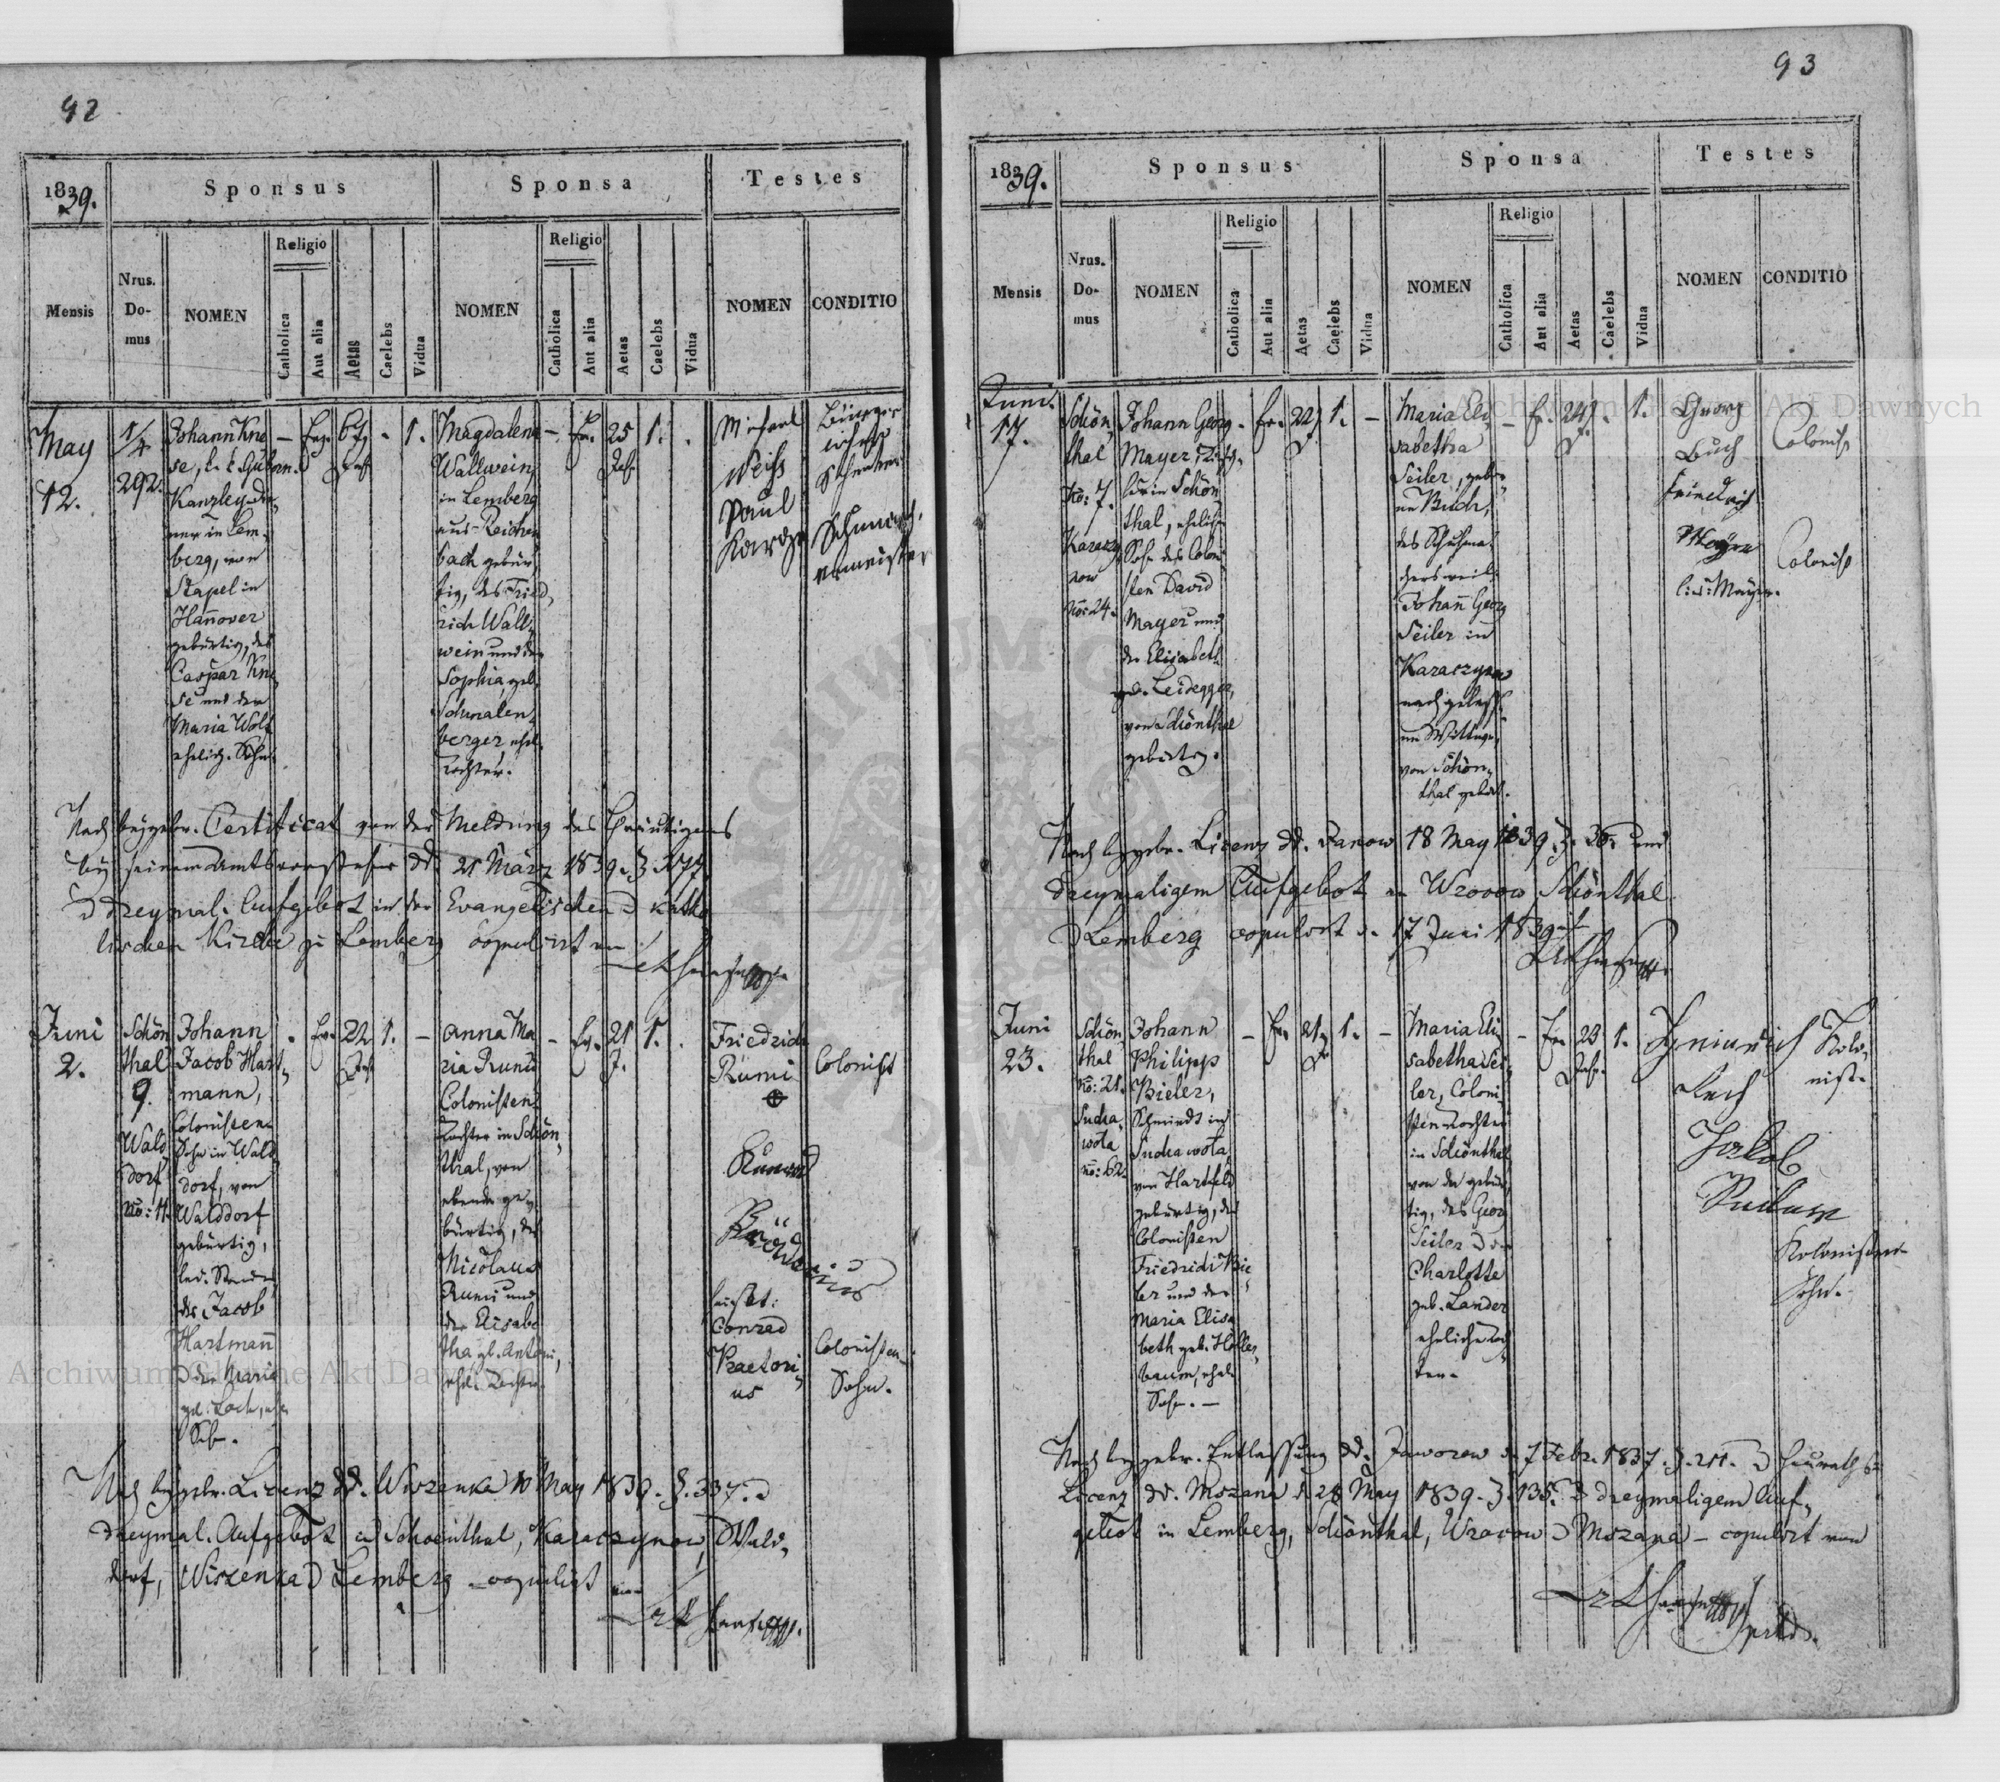 92
1839.
Sponsus
Sponsa
Testes
Mensis
Nrus. Do-mus
NOMEN
Religio
Catholica
Aut alia
Aetas
Caelebs
Vidua
NOMEN
Religio
Catholica
Aut alia
Aetas
Caelebs
Vidua
NOMEN
CONDITIO
May
12.
1/4
292.
Johann Kne
se, k. k. Gubern.
Kanzleydie
ner in Lem
berg, von
Stapel in
Hannover
gebürtig, des
Caspar Kne
se und der
Maria Wolf
ehelich. Sohn.
–
Ev.
67
Jahr
-
1.
Magdalena
Wallwein,
in Lemberg
aus Reichen
bach gebür
tig, des Fried
rich Wall
wein und der
Sophia, geb.
Schmalen
berger, ehel.
Tochter.
–
Ev.
25
Jahr
1.
Michael
Weiß
Paul
Bürger
Nach beygebr. Certificat von der Meldung des Bräutigams
bey seinem Amtsvorsteher dd. 21 März 1839
dreymal. Aufgebot in der Evangelischen & katho
lischen Kirche zu Lemberg copulirt von
Juni
2.
Schön
thal
9.
Wald
dorf
No: 11.
Johann
Jacob Hart
mann,
Colonisten
Sohn in Wald
dorf, von
Walddorf
gebürtig,
led. Standes
des Jacob
Hartmann
& der Maria
geb. Lach, ehl.
Sohn.
-
Ev.
22
Jahr
1.
–
Anna Ma
ria Rumi
Colonisten
Tochter in Schön
thal, von
ebenda ge
bürtig, des
Nicolaus
Rumi und
der Elisabe
tha gb. Antoni,
ehel. Tochter.
–
Ev.
21
J.
1.
Friedrich
Rümi
Colonist
Conrad
Praetori
us
Colonisten
Sohn.
Nach beygebr. Licenz dd. Wiszenka 10 May 1839. Z. 337. &
dreymal. Aufgebot in Schoenthal, Karaczynow, Wald
dorf, Wiszenka & Lemberg copulirt von
93
1839.
Sponsus
Sponsa
Testes
Mensis
Nrus. Do-mus
NOMEN
Religio
Catholica
Aut alia
Aetas
Caelebs
Vidua
NOMEN
Religio
Catholica
Aut alia
Aetas
Caelebs
Vidua
NOMEN
CONDITIO
Juni
17.
Schön
thal
No: 7.
Karaczy
now
No: 24.
Johann Georg
Mayer, Tisch
ler in Schön
thal, ehelicher
Sohn des Coloni
sten David
Mayer und
der Elisabeth
geb. Leidegger,
von Schönthal
gebürtig.
-
Ev.
22
J.
1.
–
Maria Eli
sabetha
Seiler, gebor
ne Buch,
des Schuhma
chers weil.
Johann Georg
Seiler in
Karaczynow
nachgelasse
ne Wittwe,
von Schön
thal gebürt.
–
Ev.
24
J.
1.
Georg
Buch
Friedrich
Meyer
Colonist
Colonist
Nach beygebr. Licenz dd. Janow 18 May 1839. Z. 36. und
dreymaligem Aufgebot in Wrocow Schönthal
& Lemberg copulirt d. 17 Juni 1839
Juni
23.
Schön
thal
No: 21.
Sucha
wola
No: 62.
Johann
Philipp
Bieler,
Schmiedt in
Suchawola
von Hartfeld
gebürtig, des
Colonisten
Friedrich Bie
ler und der
Maria Elisa
beth geb. Holler
baum, ehel.
Sohn. –
–
Ev.
21
J.
1.
–
Maria Eli
sabetha Sei
ler, Coloni
sten Tochter
in Schönthal
von da gebür
tig, des Georg
Seiler & der
Charlotte
geb. Lander
eheliche Toch
ter.
–
Ev.
23
Jahr.
1.
Heinrich
Lech
Jakob
Kolo
nist.
Kolonisten
Sohn.
Nach beygebr. Entlassung dd. Jaworow d. 7 Febr. 1837. Z. 211. & Heuraths
Licenz dd. Mszana d. 28 May 1839. Z. 135. & dreymaligem Auf
gebot in Lemberg, Schönthal, Wrocow & Mszana – copulirt von
Archiwum Główne Akt Dawnych
Archiwum Główne Akt Dawnych